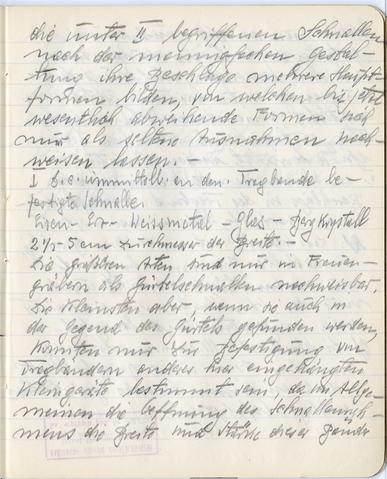 die unter II begriffenen Schnallen
nach der mannigfachen Gestal-
tung ihre Beschläge mehrere Haupt-
formen bilden, von welchen bis jetzt
wesentlich abweichende Formen sich
nur als seltene Ausnahmen nach-
weisen lassen. –
I Die unmittelb. an dem Tragbande be-
festigte Schnalle.
Eisen – Erz – Weissmetall – Glas – Bergkrystall
2½ – 5 cm Durchmesser der Breite. –
Die größten Arten sind nur in Frauen-
gräbern als Gürtelschnallen nachweisbar.
Die kleinsten aber, wenn sie auch in
der Gegend des Gürtels gefunden werden,
konnten nur zur Befestigung von
Tragbändern anderer hier eingehängten
Kleingeräte bestimmt sein, da im Allge-
meinen die Oeffnung des Schnallenrah-
mens die Breite und Stärke dieser Bänder